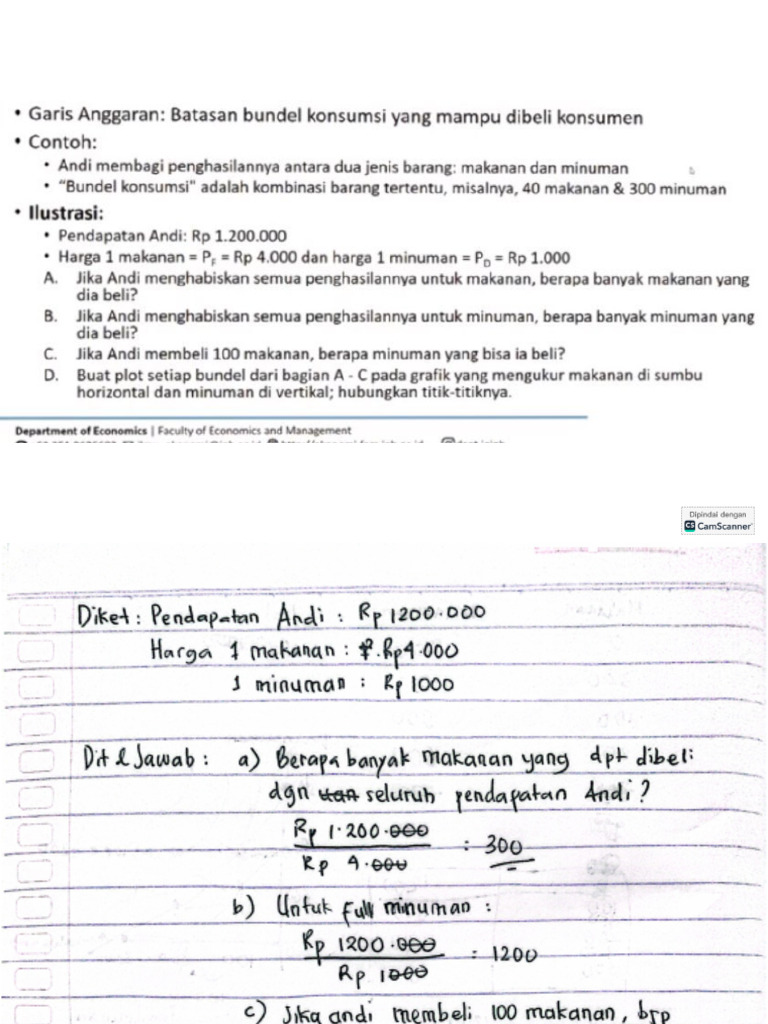 • Garis Anggaran: Batasan bundel konsumsi yang mampu dibeli konsumen
• Contoh:
• Andi membagi penghasilannya antara dua jenis barang: makanan dan minuman
• "Bundel konsumsi" adalah kombinasi barang tertentu, misalnya, 40 makanan & 300 minuman
• Ilustrasi:
• Pendapatan Andi: Rp 1.200.000
• Harga 1 makanan = PF = Rp 4.000 dan harga 1 minuman = PD = Rp 1.000
A. Jika Andi menghabiskan semua penghasilannya untuk makanan, berapa banyak makanan yang
dia beli?
B. Jika Andi menghabiskan semua penghasilannya untuk minuman, berapa banyak minuman yang
dia beli?
C. Jika Andi membeli 100 makanan, berapa minuman yang bisa ia beli?
D. Buat plot setiap bundel dari bagian A - C pada grafik yang mengukur makanan di sumbu
horizontal dan minuman di vertikal; hubungkan titik-titiknya.
Department of Economics | Faculty of Economics and Management
Dipindai dengan
CS CamScanner
Diket: Pendapatan Andi : Rp 1200.000
Harga 1 makanan : Rp4.000
1 minuman : Rp 1000
Dit & Jawab : a) Berapa banyak makanan yang dpt dibeli
dgn seluruh pendapatan Andi?
Rp 1.200.000
: 300
Rp 4.000
b) Untuk full minuman :
Rp 1200.000
: 1200
Rp 1000
c) Jika andi membeli 100 makanan, brp